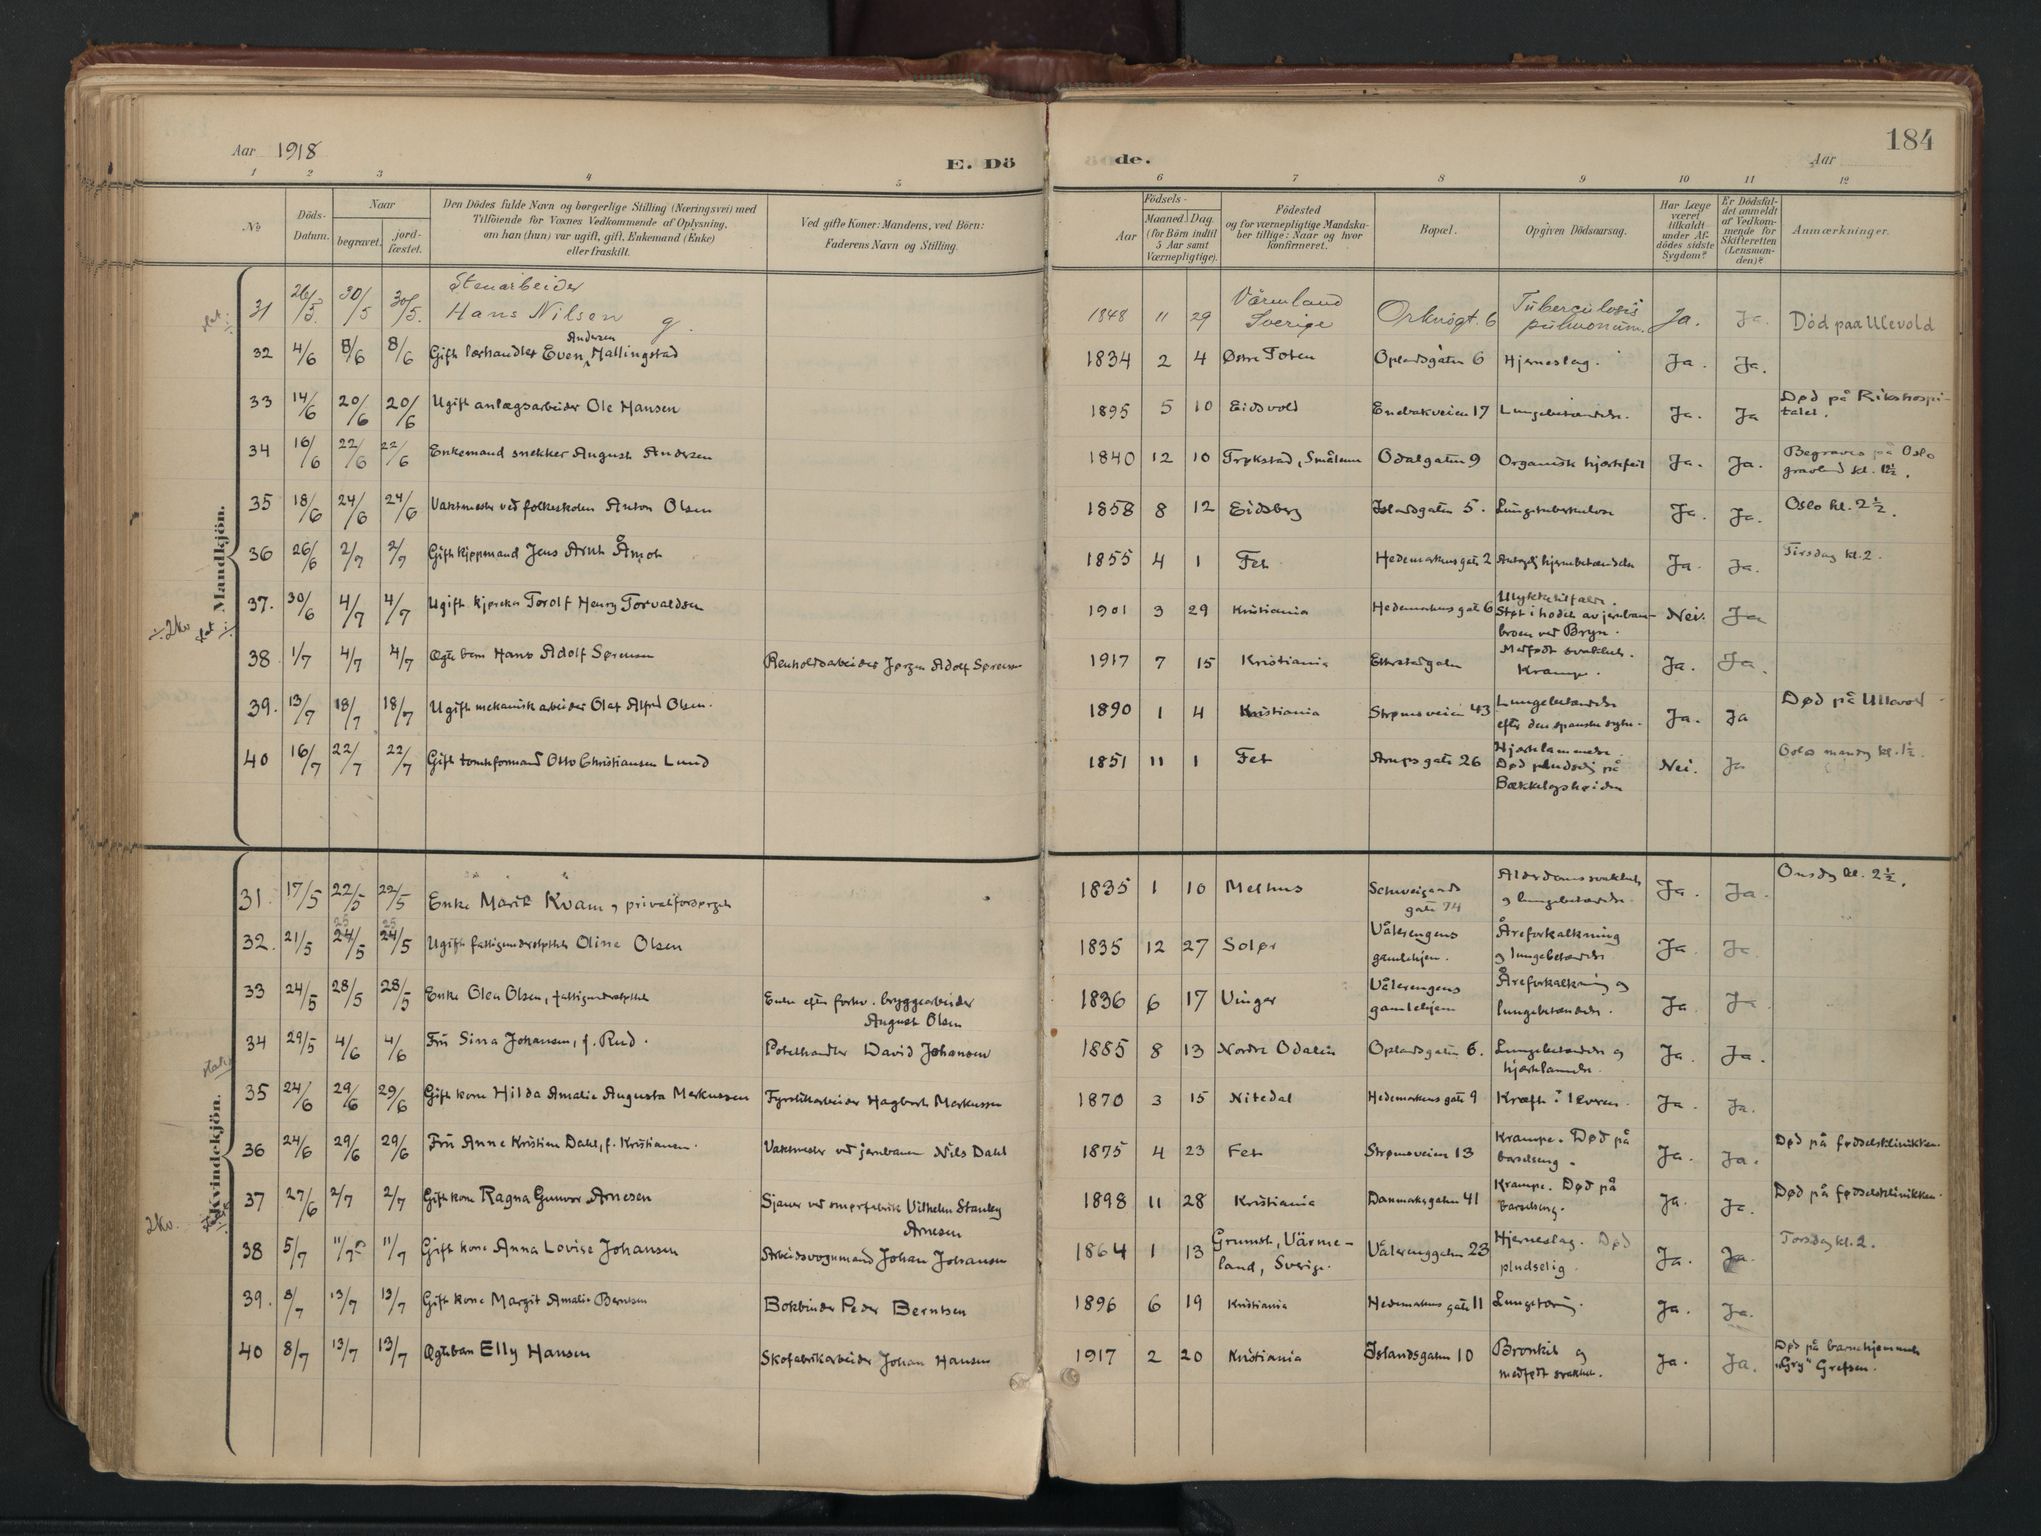 Aar 1918
E. Dö
de.
184
Aar
1 2 3 4 5 6 7 8 9 10 11 12
No
Döds-
Datum.
Naar
begravet.
jord-
fæstet.
Den Dödes fulde Navn og borgerlige Stilling (Næringsvei) med
Tilföiende for Voxnes Vedkommende af Oplysning,
om han (hun) var ugift, gift, Enkemand (Enke)
eller fraskilt.
Ved gifte Koner: Mandens, ved Börn:
Faderens Navn og Stilling.
Aar
Födsels-
Maaned. Dag.
(for Börn indtil
5 Aar samt
Værnepligtige).
Födested
og for værnepligtige Mandska-
ber tillige: Naar og hvor
konfirmeret.
Bopæl.
Opgiven Dödsaarsag.
Har Læge
været
tilkaldt
under Af-
dödes sidste
Sygdom?
Er Dödsfal-
det anmeldt
af Vedkom-
mende for
Skifteretten
(Lensman-
den)?
Anmærkninger.
Mandkjön.
Stenarbeider
31 26/5 30/5 30/5 Hans Nilsen g. 1848 11 29 Värmland Sverige Orknögt. 6 Tuberculosis pulmonum. Ja. Ja. Död paa Ulevold
Andersen
32 4/6 8/6 8/6 Gift lærhandler Even Mallingstad 1834 2 4 Østre Toten Oplandsgaten 6 Hjerneslag. Ja. Ja.
33 14/6 20/6 20/6 Ugift anlægsarbeider Ole Hansen 1895 5 10 Eidsvold Enebakveien 17 Lungebetændelse. Ja. Ja Død på Rikshospi-
talet.
34 16/6 22/6 22/6 Enkemand snekker August Andersen 1840 12 10 Trøkstad, Smålenene Odalgaten 9 Organisk hjertefeil Ja. Ja. Begraves på Oslo
gravlund kl. 12½.
35 18/6 24/6 24/6 Vaktmester ved folkeskolen Anton Olsen 1858 8 12 Eidsberg Islandsgaten 5. Lungetuberkulose Ja. Ja. Oslo kl. 2½.
36 26/6 2/7 2/7 Gift kjøpmand Jens Arnt Åmot 1855 4 1 Fet Hedemarkens gate 2 hjernebetændelse Ja. Ja. Tirsdag kl. 2.
37. 30/6 4/7 4/7 Ugift kjøreker Torolf Henry Torvaldsen 1901 3 29 Kristiania Hedemarkens gate 6 Ulykkestilfælde.
Støt i hodet av jernban-
broen ved Bryn. Nei. Ja
38 1/7 4/7 4/7 Ægte barn Hans Adolf Sørensen Renholdsarbeider Jørgen Adolf Sørensen 1917 7 15 Kristiania Etterstadgaten Medfødt svakhet.
Krampe. Ja. Ja.
39. 13/7 18/7 18/7 Ugift mekanisk arbeider Olaf Alfred Olsen. 1890 1 4 Kristiania Strømsveien 43 Lungebetændelse
efter den spanske syke. Ja. Ja Død på Ullevol
40 16/7 22/7 22/7 Gift tomteformand Otto Christiansen Lund 1851 11 1 Fet Arups gate 26 Hjertelammelse.
Død pludselig på
Bækkelagshøiden Nei. Ja Oslo mandag kl. 1½.
Kvindekjön.
31. 17/5 22/5 22/5 Enke Marit Kvam, privat forsørget 1835 1 10 Melhus Schweigaards
gate 74 Alderdomssvakhet
og lungebetændelse. Ja. Ja. Onsdag kl. 2½.
25 25
32. 21/5 24/5 24/5 Ugift fattigunderstøttet Oline Olsen 1835 12 27 Solør Vålerengens
gamlehjem. Åreforkalkning
og lungebetændelse Ja. Ja
33 24/5 28/5 28/5 Enke Olea Olsen, fattigunderstøttet Enke efter forhv. bryggearbeider
August Olsen 1836 6 17 Vinger Vålerengens
gamlehjem Åreforkalkning og
lungebetændelse. Ja Ja
34 29/5 4/6 4/6 Fru Sina Johansen, f. Rud. Potethandler David Johansen 1885 8 13 Nordre Odalen Oplandsgaten 6. Lungebetændelse og
hjertelammelse. Ja. Ja.
35 24/6 29/6 29/6 Gift kone Hilda Amalie Augusta Markussen Fyrstikarbeider Hagbart Markussen 1870 3 15 Nitedal Hedemarkens gate 9 Kræft i leveren. Ja. Ja.
36 24/6 29/6 29/6 Fru Anne Kristine Dahl, f. Kristiansen. Vaktmester ved jernbanen Nils Dahl 1875 4 23 Fet Strømsveien 13 Krampe. Død på
barselseng. Ja. Ja. Død på fødselsklinikken.
37 27/6 2/7 2/7 Gift kone Ragna Gunvor Arnesen Sjauer ved smørfabrik Vilhelm Stanley
Arnesen 1898 11 28 Kristiania Danmarksgaten 41 Krampe. Død på
barselseng. Ja. Ja. Død på fødselsklinikken.
38 5/7 11/7 11/7 Gift kone Anna Lovise Johansen Arbeidsvognmand Johan Johansen 1864 1 13 Grumst, Värme-
land, Sverige. Vålerenggaten 23 Hjerneslag. Død
pludselig. Ja. Ja. Torsdag kl. 2.
39. 8/7 13/7 13/7 Gift kone Margit Amalie Berntsen Bokbinder Peder Berntsen 1896 6 19 Kristiania Hedemarkens gate 11 Lungetæring. Ja. Ja.
40 8/7 13/7 13/7 Ægtebarn Elly Hansen Skofabrikarbeider Johan Hansen 1917 2 20 Kristiania Islandsgaten 10 Bronkit og
medfødt svakhet. Ja. Ja. Død på barnehjemmet
"Gry" Grefsen.